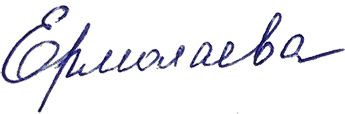 Ермолаева